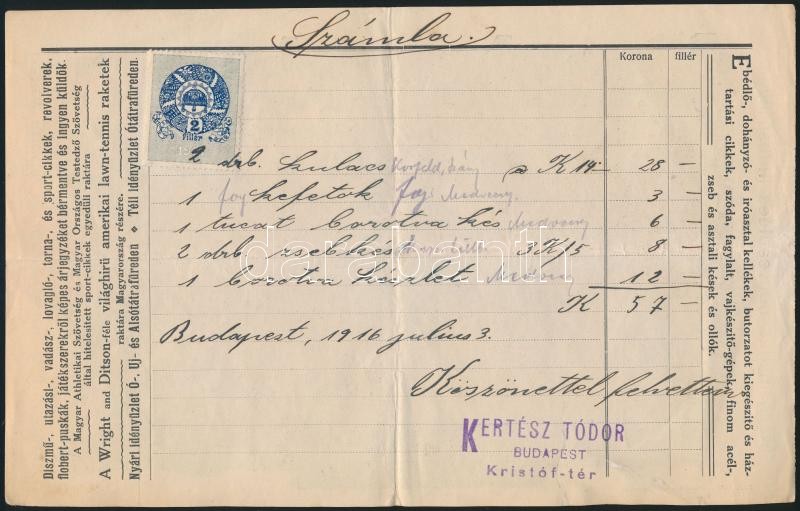 Számla.
Díszmű-, utazási-, vadász-, lovagló-, torna-, és sport-cikkek, revolverek,
flobert-puskák, játékszerekről képes árjegyzéket bérmentve és ingyen küldök.
A Magyar Athletikai Szövetség és Magyar Országos Testedző Szövetség
által hitelesített sport-cikkek egyedüli raktára
A Wright and Ditson-féle világhírű amerikai lawn-tennis raketek
raktára Magyarország részére.
Nyári idényüzlet Ó-, Uj- és Alsótátrafüreden. Téli idényüzlet Ótátrafüreden.
2
fillér
Korona fillér
2 drb. kulacs a K 14.- 28 -
1 fog kefetok 3 -
1 tucat borotva kés 6 -
2 drb zsebkés 3 K/5 8 -
1 borotva készlet 12 -
K 57 -
Budapest, 1916 julius 3.
Köszönettel felvettem
KERTÉSZ TÓDOR
BUDAPEST
Kristóf-tér
Ebédlő-, dohányzó- és iróasztal kellékek, butorzatot kiegészitő és ház-
tartási cikkek, szóda, fagylalt, vajkészitő-gépek, finom acél-,
zseb és asztali kések és ollók.
darabanth